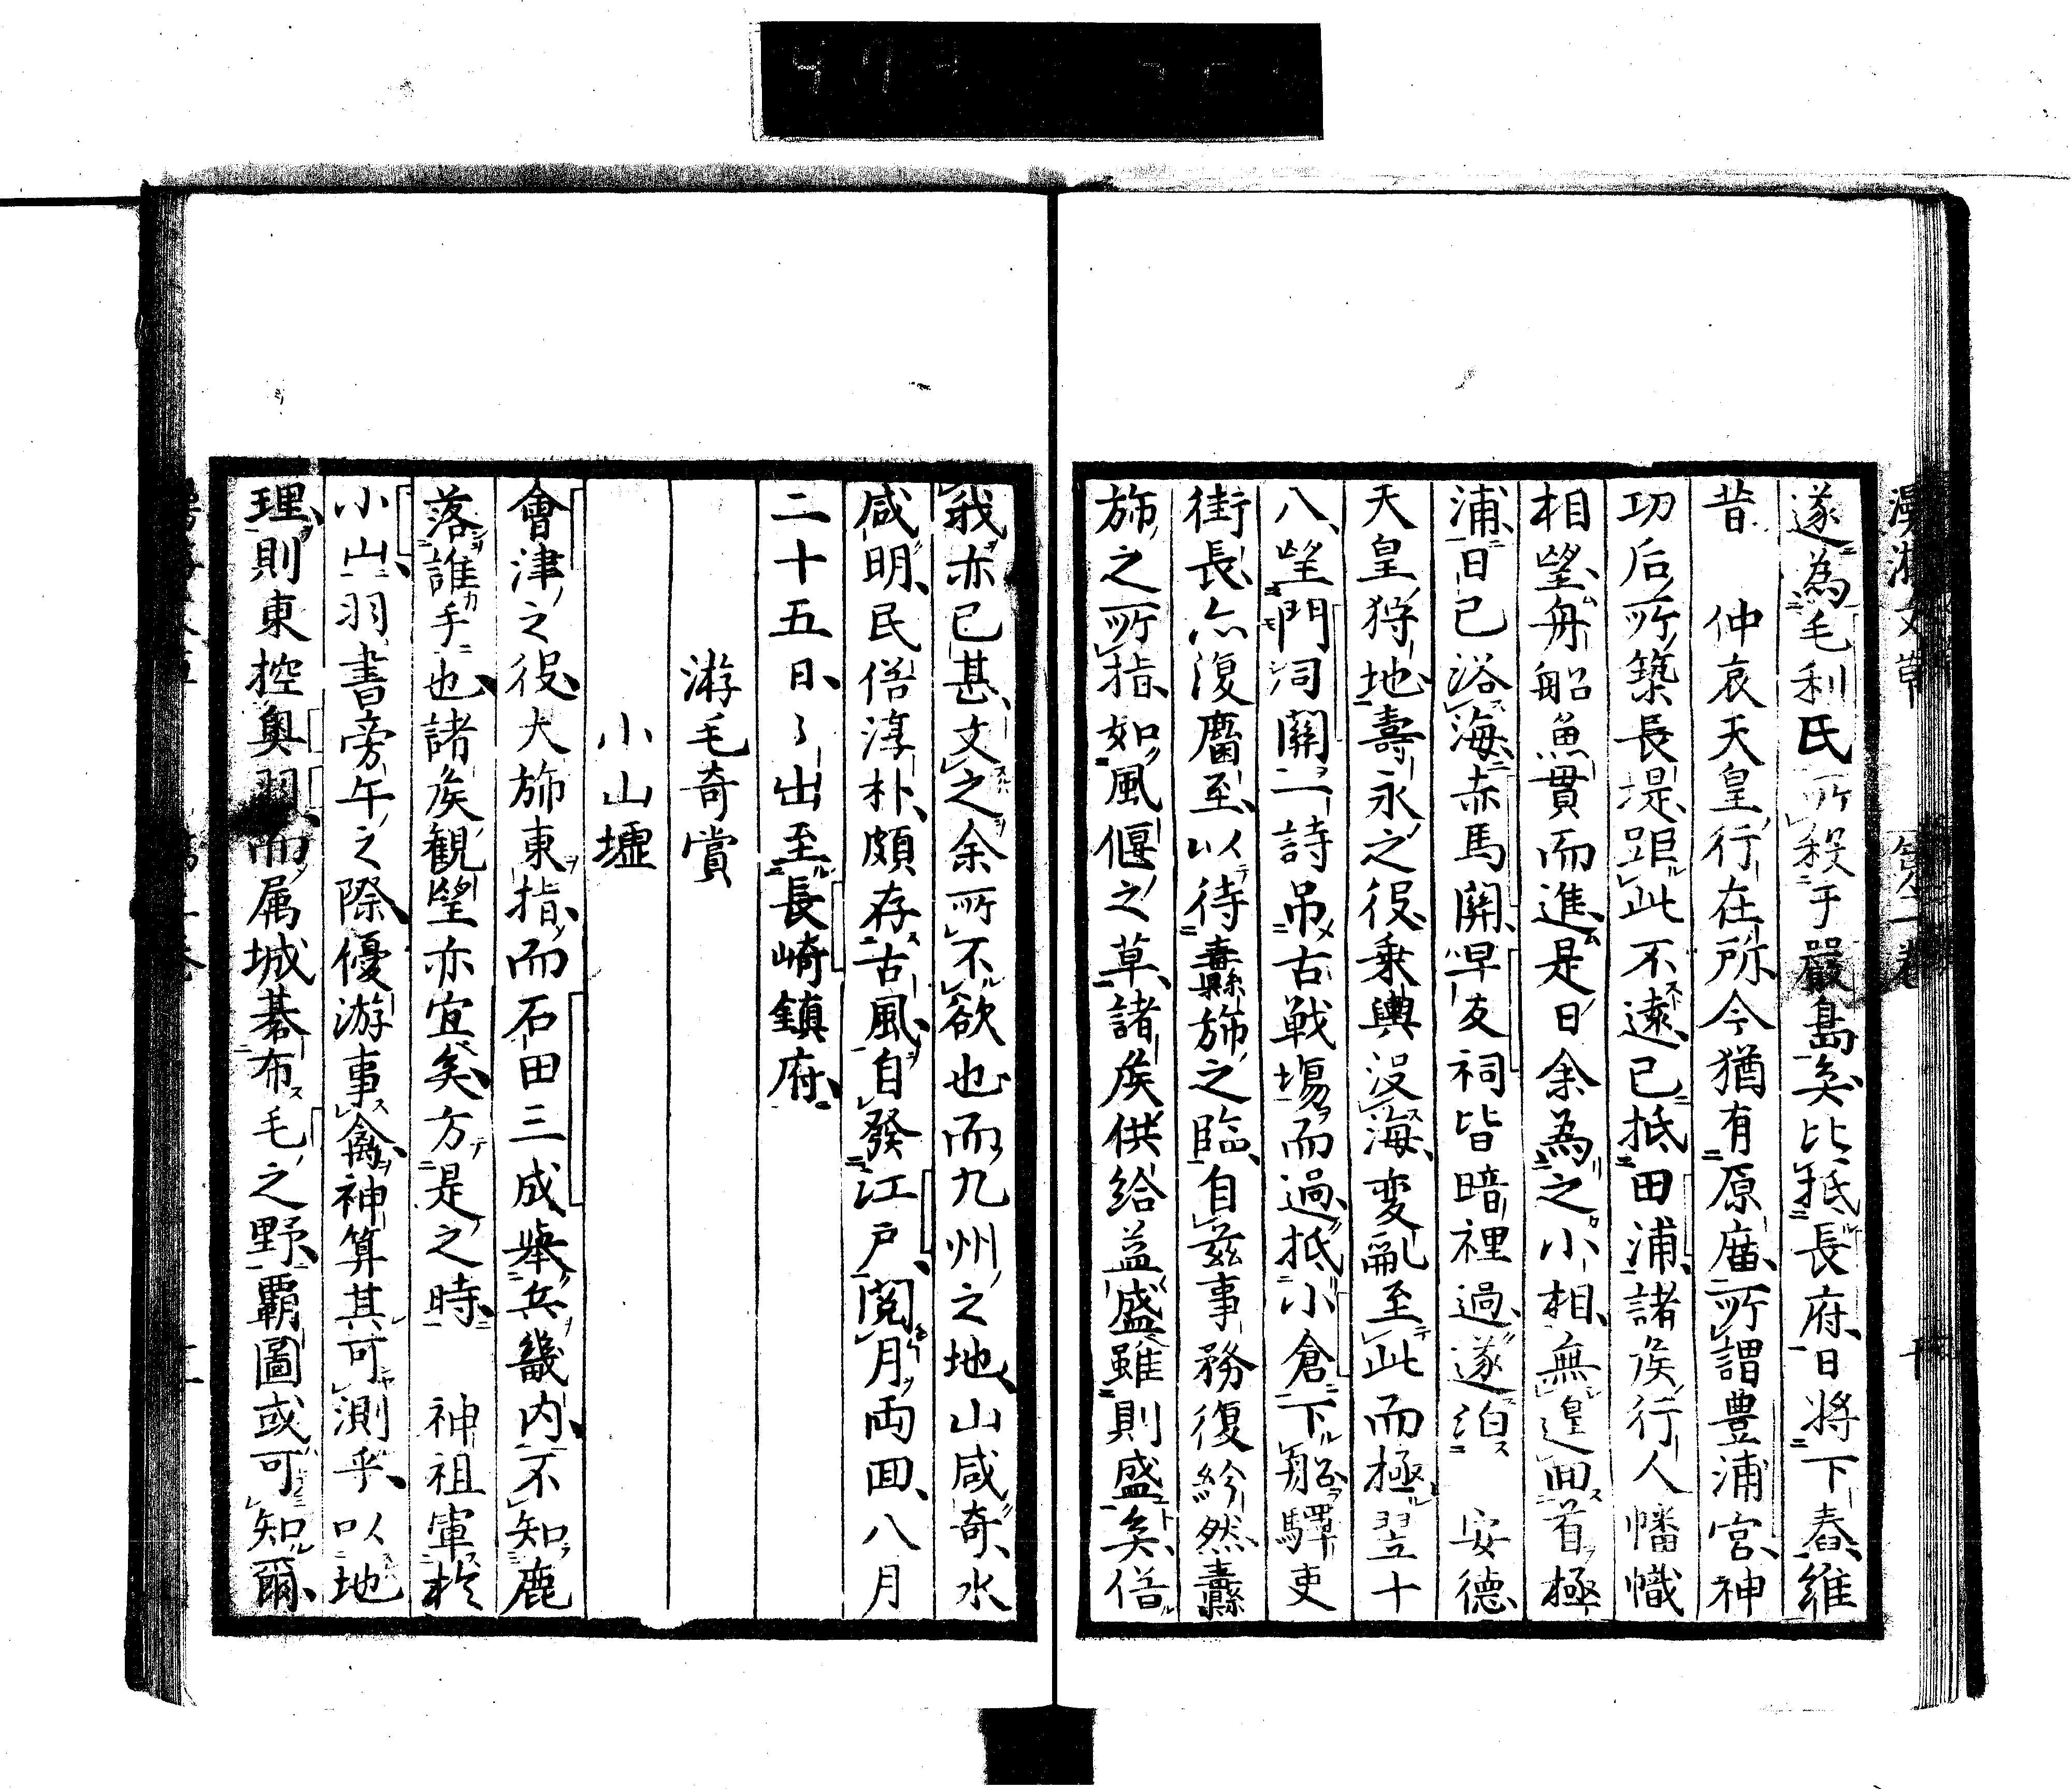 遂為毛利氏所殺于嚴島矣比抵長府日將下舂維
昔　仲哀天皇行在所今猶有原廟所謂豊浦宮神
功后所築長堤距此不遠已抵田浦諸侯行人幡幟
相望舟船魚貫而進是日余為之小相無遑回首極
浦日已浴海赤馬關早友祠皆暗裡過遂泊　安德
天皇狩地壽永之役乗輿没海変亂至此而極翌十
八望門司關二詩吊古戦塲而過抵小倉下船驛吏
街長亦復麕至以待纛斾之臨自茲事務復紛然纛
斾之所指如風偃之草諸侯供給益盛雖則盛矣倍
我亦已甚文之余所不欲也而九州之地山咸奇水
咸明民俗淳朴頗存古風自發江戸閲月両回八月
二十五日日出至長崎鎮府
游毛奇賞
小山墟
會津之役大斾東指而石田三成舉兵畿内不知鹿
落誰手也諸侯観望亦宜矣方是之時　神祖軍於
小山羽書旁午之際優游事禽神算其可測乎以地
理則東控奥羽而属城碁布毛之野覇圖或可知爾